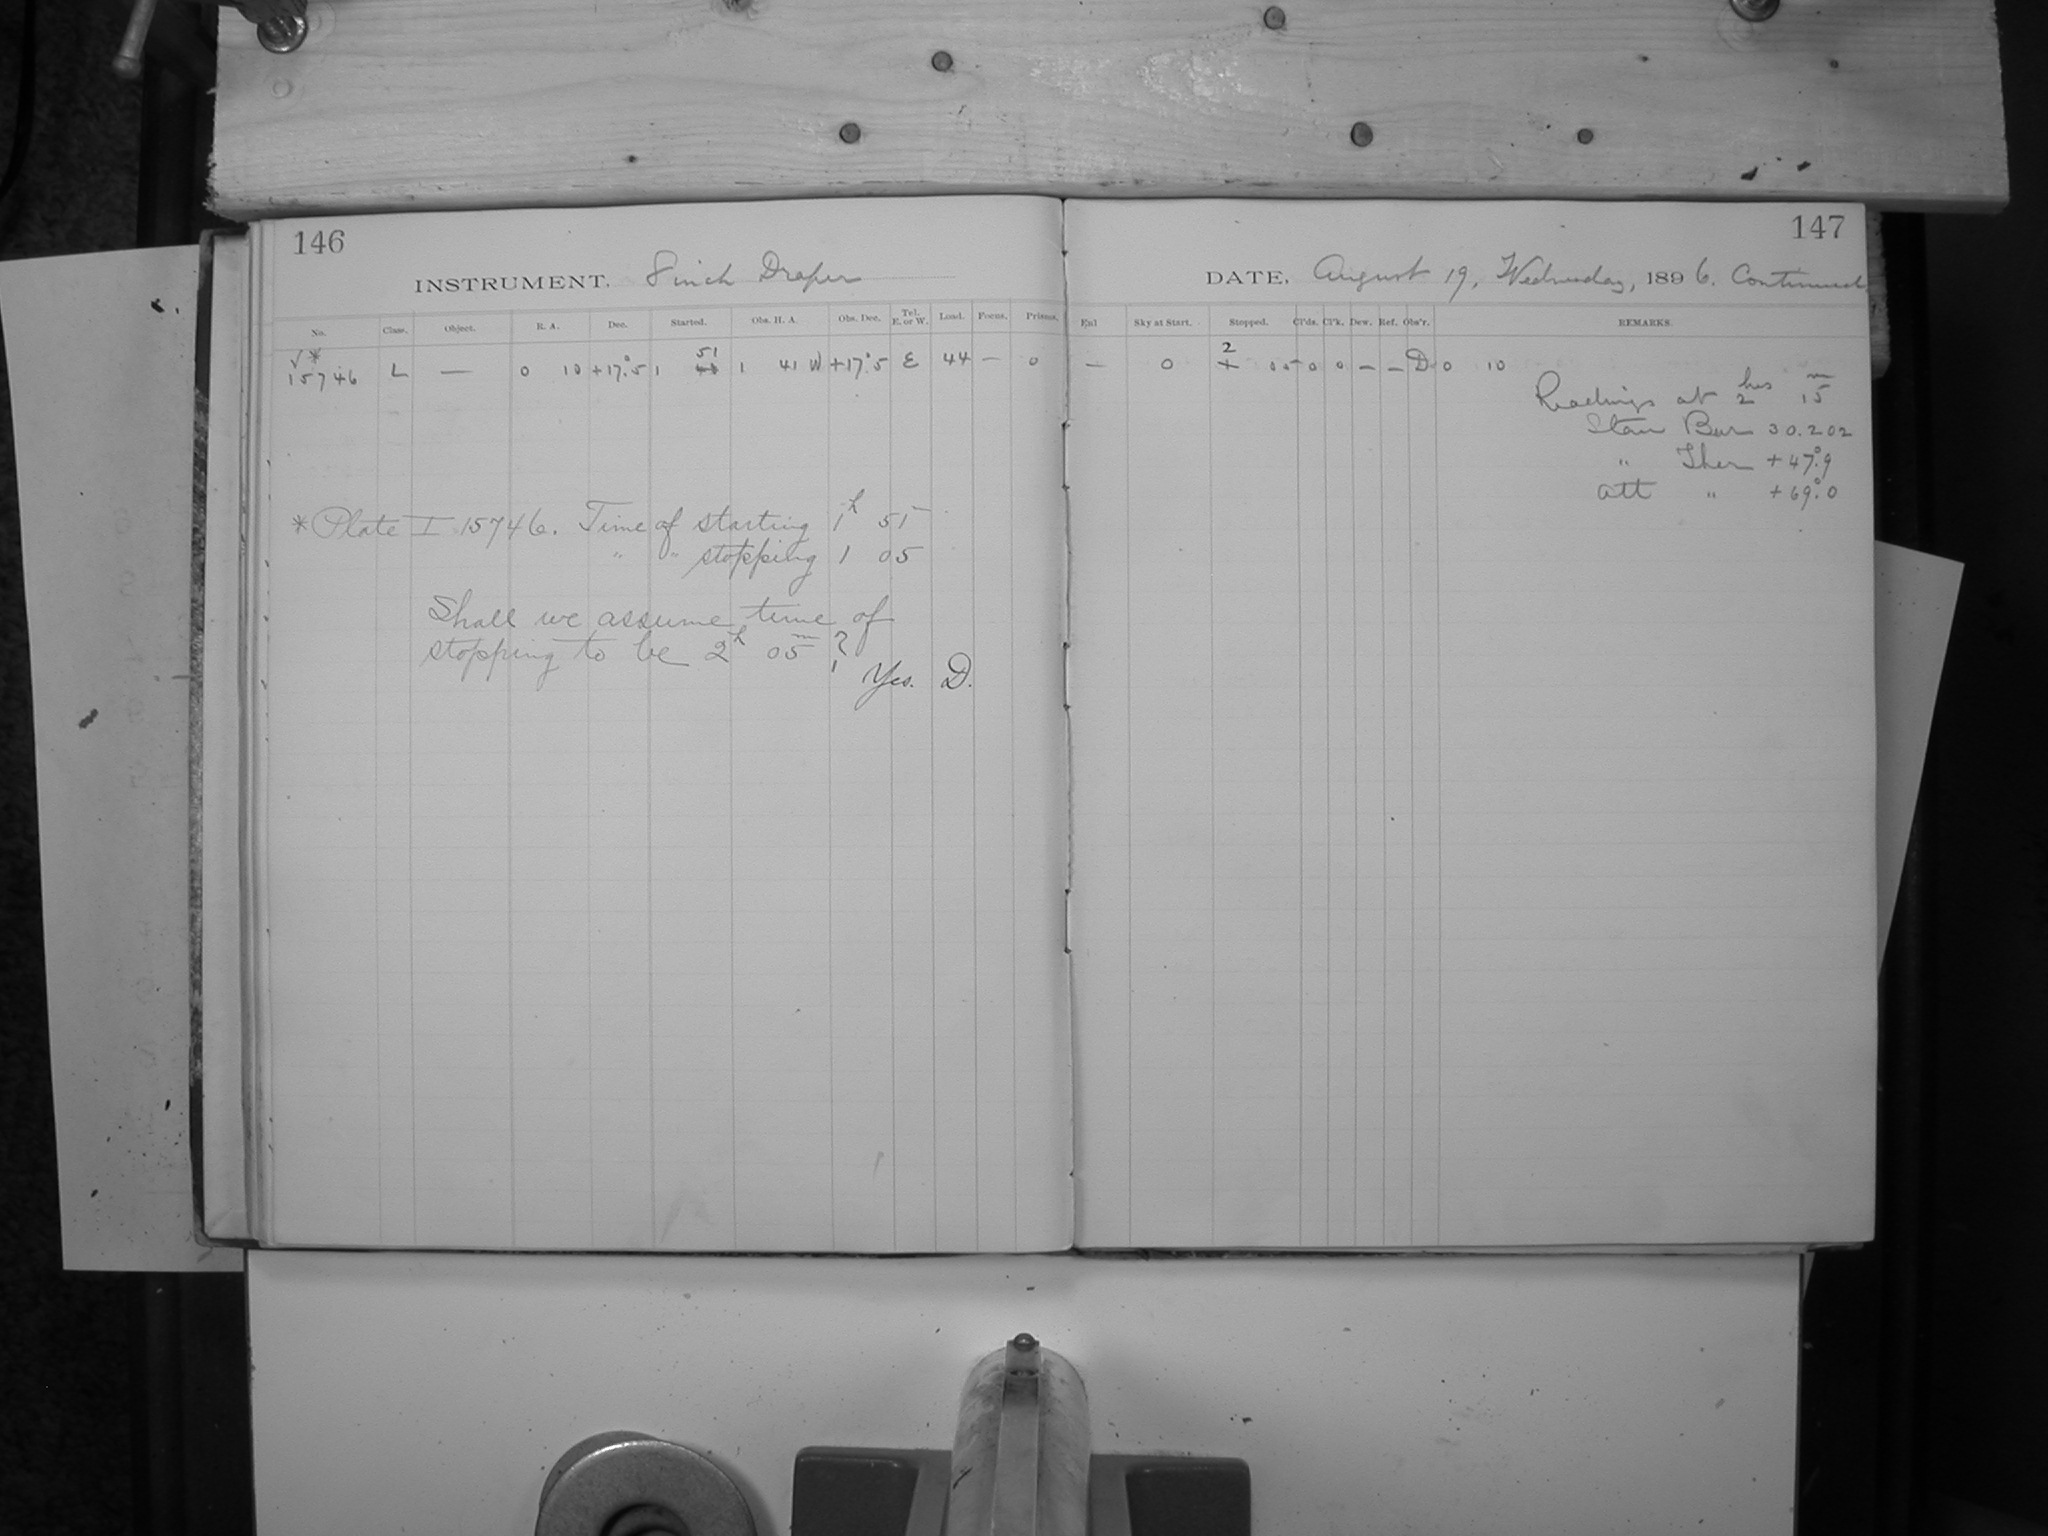 146
INSTRUMENT. 8 inch Draper
No. Class. Object. R. A. Dec. Started. Obs. H. A. Obs. Dec. Tel. E. or W. Load. Focus. Prisms.
√ * 51
15746 L — 0 10 +17°.5 1 1 41 W +17°.5 E 44 — 0
* Plate I 15746. Time of starting 1h 51
" " stopping 1 05
Shall we assume time of
stopping to be 2h 05m?
Yes. D.
147
DATE, August 19, Wednesday, 1896. Continued
Enl Sky at Start. Stopped. Cl'ds. Cl'k. Dew. Ref. Obs'r. REMARKS.
2
— 0 1 05 0 0 — — D 0 10
Readings at 2hrs 15m
Stan Bar 30.202
" Ther +47°.9
Att " +69°.0